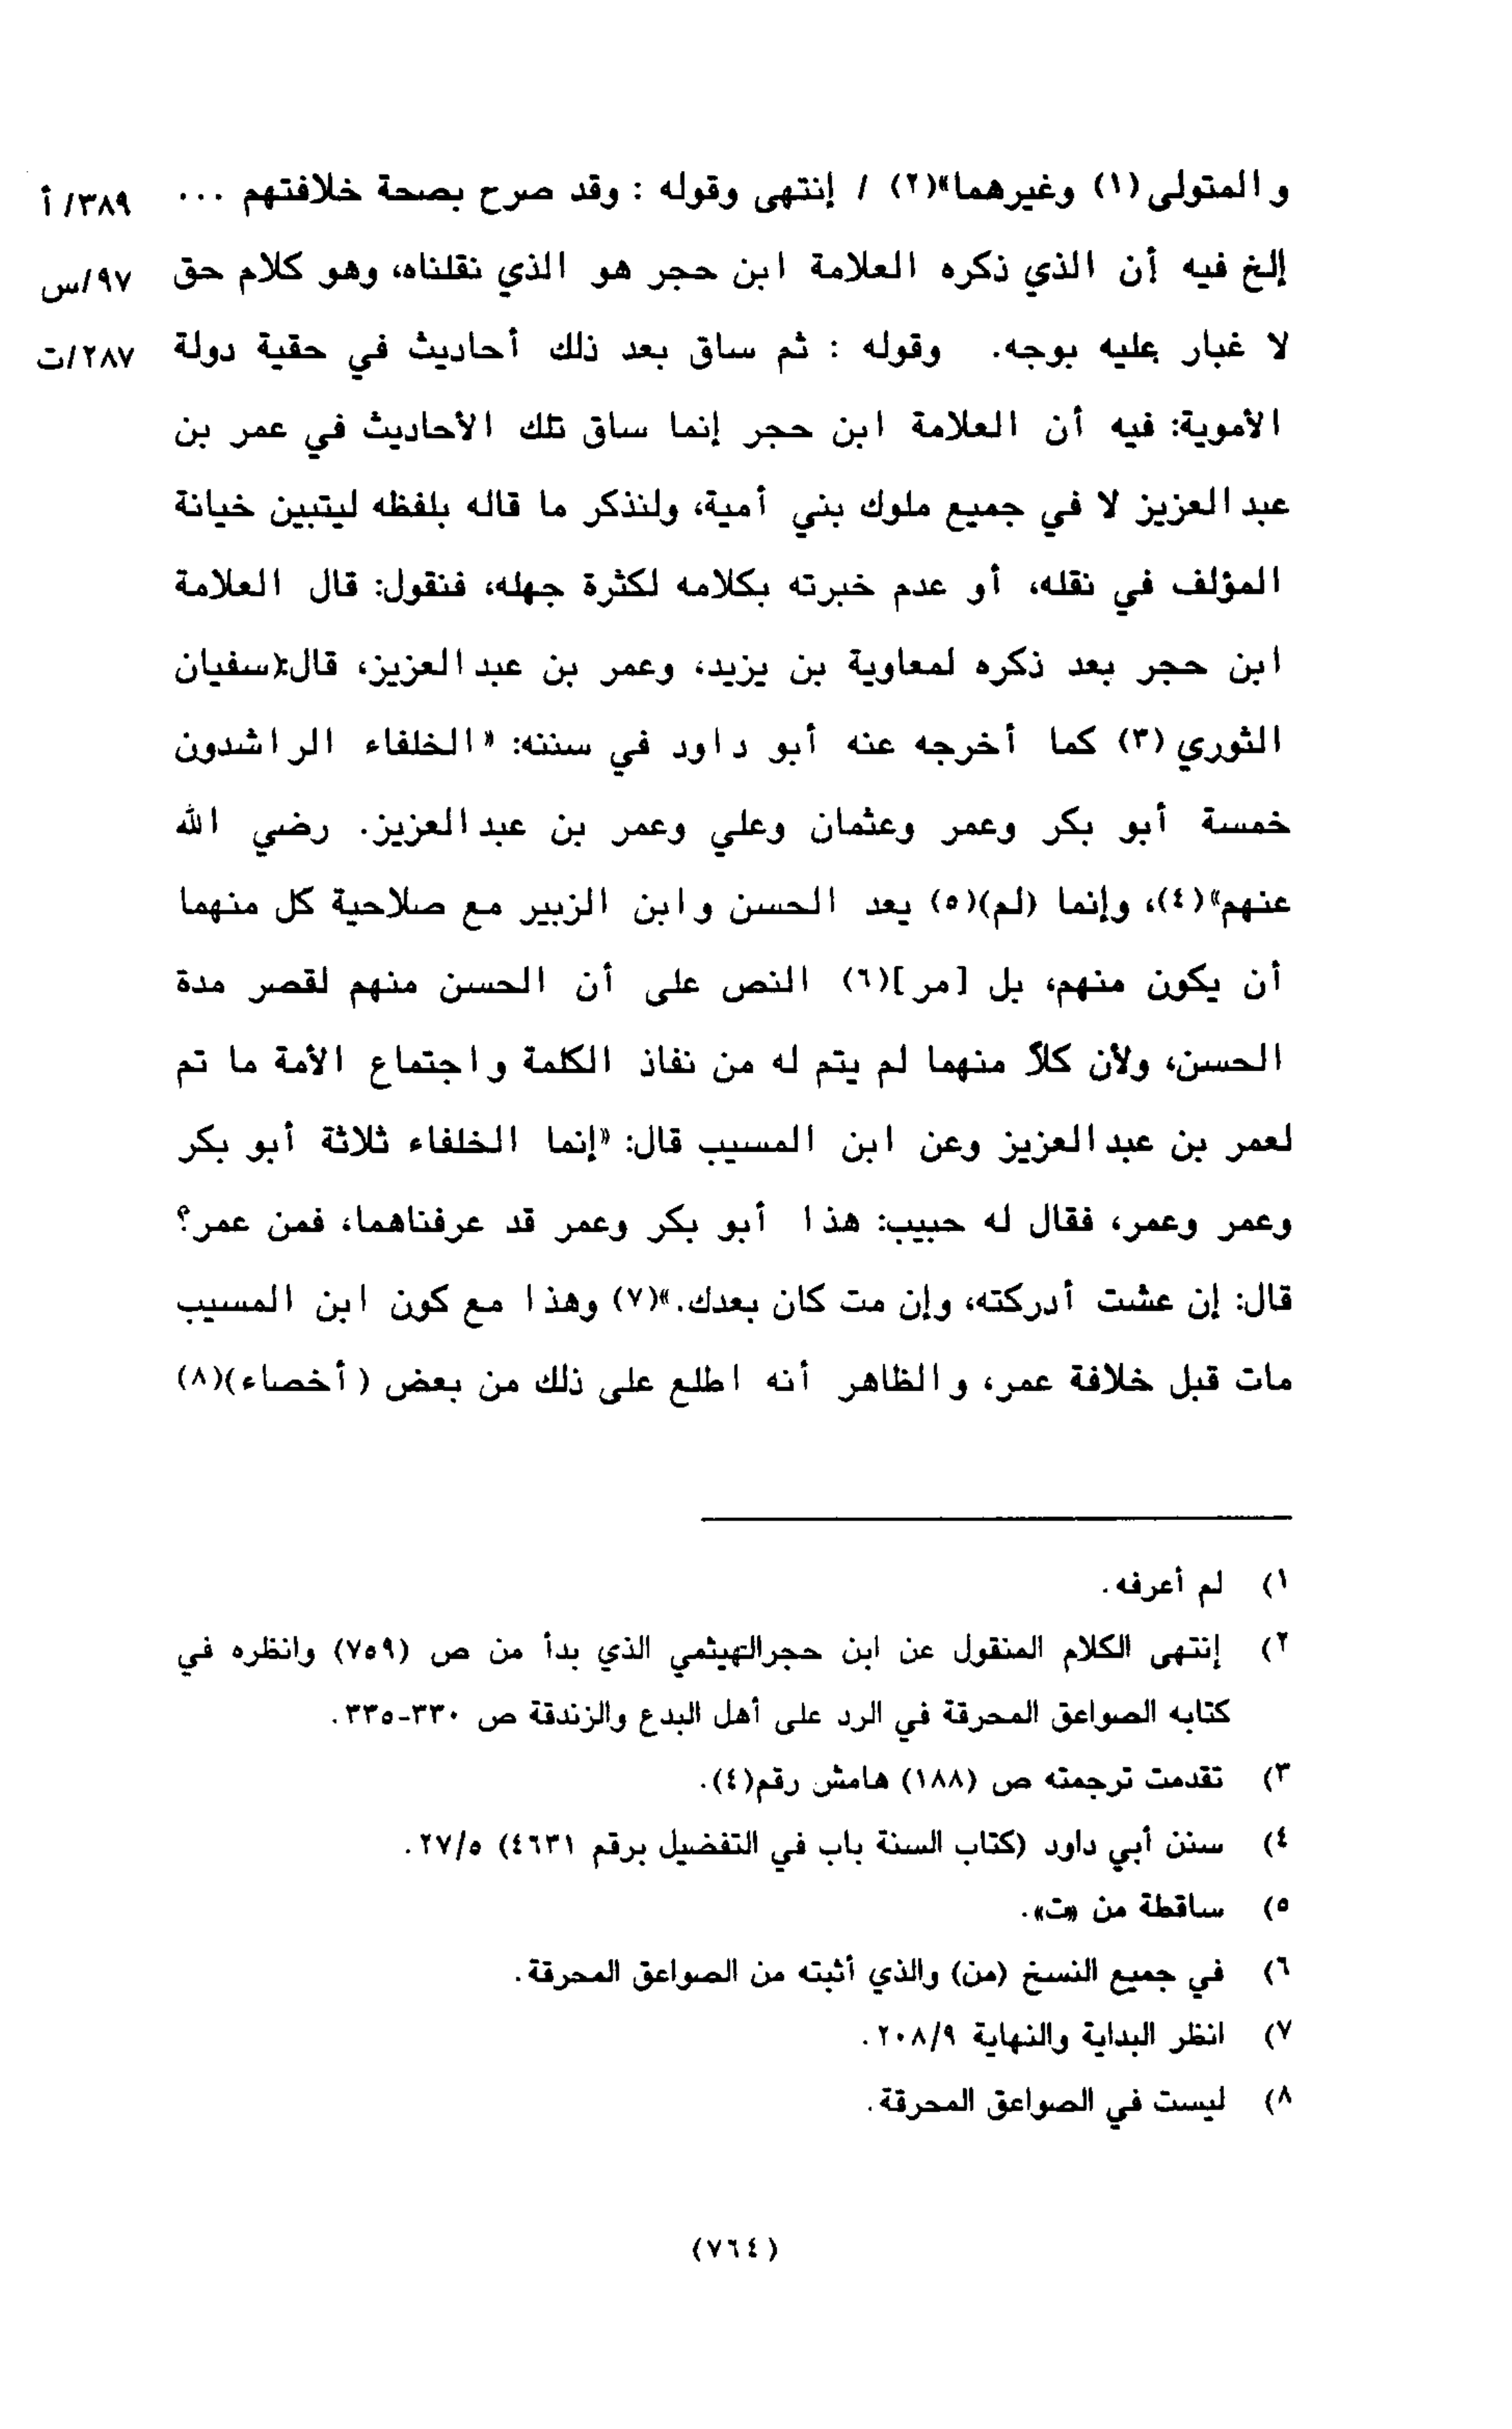 والمتولى(١) وغيرهما»(٢) / إنتهى وقوله : وقد صرح بصحة خلافتهم ... ٣٨٩/ أ
إلخ فيه أن الذي ذكره العلامة ابن حجر هو الذي نقلناه، وهو كلام حق ٩٧/س
لا غبار عليه بوجه. وقوله : ثم ساق بعد ذلك أحاديث في حقية دولة ٢٨٧/ت
الأموية: فيه أن العلامة ابن حجر إنما ساق تلك الأحاديث في عمر بن
عبد العزيز لا في جميع ملوك بني أمية، ولنذكر ما قاله بلفظه ليتبين خيانة
المؤلف في نقله، أو عدم خبرته بكلامه لكثرة جهله، فنقول: قال العلامة
ابن حجر بعد ذكره لمعاوية بن يزيد، وعمر بن عبد العزيز، قال: سفيان
الثوري (٣) كما أخرجه عنه أبو داود في سننه: «الخلفاء الراشدون
خمسة أبو بكر وعمر وعثمان وعلي وعمر بن عبد العزيز. رضي الله
عنهم»(٤)، وإنما (لم)(٥) يعد الحسن وابن الزبير مع صلاحية كل منهما
أن يكون منهم، بل [مر](٦) النص على أن الحسن منهم لقصر مدة
الحسن، ولأن كلاً منهما لم يتم له من نفاذ الكلمة واجتماع الأمة ما تم
لعمر بن عبد العزيز وعن ابن المسيب قال: «إنما الخلفاء ثلاثة أبو بكر
وعمر وعمر، فقال له حبيب: هذا أبو بكر وعمر قد عرفناهما، فمن عمر؟
قال: إن عشت أدركته، وإن مت كان بعدك.»(٧) وهذا مع كون ابن المسيب
مات قبل خلافة عمر، والظاهر أنه اطلع على ذلك من بعض (أخصاء)(٨)
١) لم أعرفه.
٢) إنتهى الكلام المنقول عن ابن حجر الهيثمي الذي بدأ من ص (٧٥٩) وانظره في
كتابه الصواعق المحرقة في الرد على أهل البدع والزندقة ص ٣٣٠-٣٣٥.
٣) تقدمت ترجمته ص (١٨٨) هامش رقم(٤).
٤) سنن أبي داود (كتاب السنة باب في التفضيل برقم ٤٦٣١) ٢٧/٥.
٥) ساقطة من «ت».
٦) في جميع النسخ (من) والذي أثبته من الصواعق المحرقة.
٧) انظر البداية والنهاية ٢٠٨/٩.
٨) ليست في الصواعق المحرقة.
(٧٦٤)